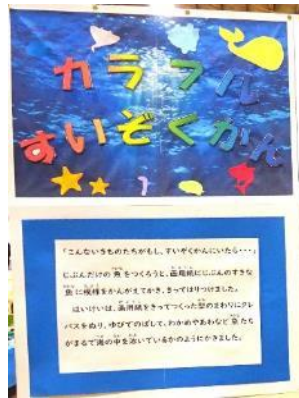 カラフル
すいぞくかん
「こんないきものたちがもし、すいぞくかんにいたら・・・」
じぶんだけの魚をつくろうと、画用紙にじぶんのすきな
魚に模様をかんがえてかき、きってはりつけました。
はいけいは、画用紙をきってつくった型のまわりにクレ
パスをぬり、ゆびでのばして、わかめやあわなど魚たち
がまるで海の中を泳いでいるかのようにかきました。